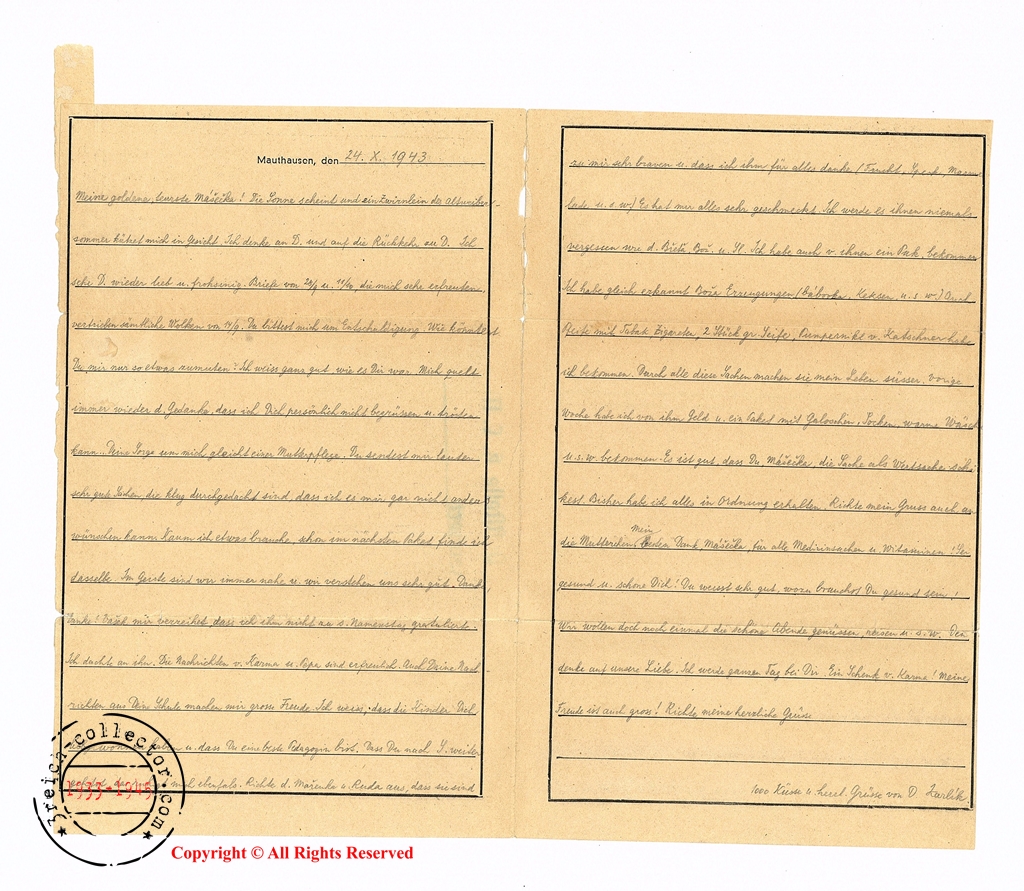 Mauthausen, den 24. X. 1943
Meine goldene, teurste Mášečka! Die Sonne scheint und ein Zwirnlein des Altweiber-
sommer kützelt mich in Gesicht. Ich denke an D. und auf die Rückkehr zu D. Ich
sehe D. wieder lieb u. frohsinnig. Briefe von u. die mich sehr erfreuten,
vertrieben sämtliche Wolken von Du bittest mich um Entschuldigung. Wie könntest
Du mir nur so etwas zumuten! Ich weiss ganz gut wie es Dir war. Mich quält
immer wieder d. Gedanke, dass ich Dich persönlich nicht begrüssen u. trösten
kann. Deine Sorge um mich gleicht einer Mutterpflege. Du sendest mir lauter
sehr gute Sachen, die klug durchgedacht sind, dass ich es mir gar nicht anders
wünschen kann. Kaum ich etwas brauche, schon im nächsten Paket finde ich
dasselbe. Im Geiste sind wir immer nahe u. wir verstehen uns sehr gut. Danke,
Danke! mir verzeihet, dass ich ihm nicht zu s. Namenstag gratulierte.
Ich dachte an ihn. Die Nachrichten v. Karma u. Papa sind erfreulich. Auch Deine Nach-
richten aus Dein Schule machen mir grosse Freude. Ich weiss, dass die Kinder Dich
haben u. dass Du eine beste Pedagogin bist. Dass Du nach
mich ebenfals. Richte d. Mařenka u. Ruda aus, dass sie sind
zu mir sehr braven u. dass ich ihm für alles danke (Frucht, Speck, Marme-
lade, u. s. w.) Es hat mir alles sehr geschmeckt. Ich werde es ihnen niemals
vergessen wie d. u. Sl. Ich habe auch v. ihnen ein Pak. bekommen
Ich habe gleich erkannt Boža Erzeugungen (Bábovka, Keksen, u. s. w.) Auch
mit Tabak Zigareten, 2 Stück gr. Seife, Pumpernikl v. Katschner habe
ich bekommen. Durch alle diese Sachen machen sie mein Leben süsser. Vorige
Woche habe ich von ihm Geld u. ein Paket mit Galoschen, Socken, warme Wäsch
u. s. w. bekommen. Es ist gut, dass Du Mášečka, die Sache als Wertsache schi-
kest. Bisher habe ich alles in Ordnung erhalten. Richte mein Gruss auch an
die Mutterchen. Mein besten Dank Mášečka für alle Medizinsachen u. Witaminen!
gesund u. schone Dich! Du weisst sehr gut, wozu brauchst Du gesund sein!
Wir wollen doch noch einmal die schöne Abende geniessen, reisen u. s. w.
denke auf unsere Liebe. Ich werde ganzen Tag bei Dir. Ein Schenk v. Karma! Meine
Freude ist auch gross! Richte meine herzliche Grüsse
1000 Küsse u. herzl. Grüsse von D. Karlik
3reich-collector.com
1933-1945
Copyright © All Rights Reserved